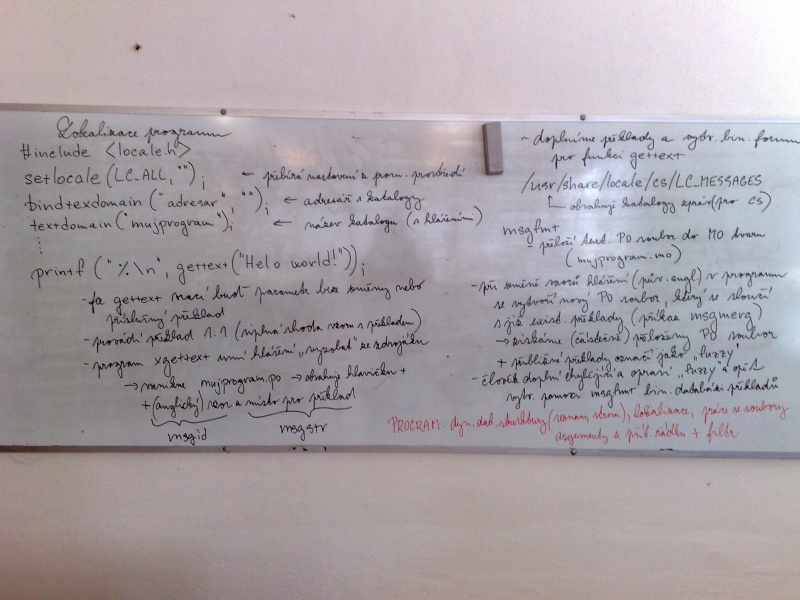 Lokalizace programu
#include <locale.h>
setlocale (LC_ALL, ""); ← přebírá nastavení z prom. prostředí
bindtexdomain ("adresar", ""); ← adresář s katalogy
textdomain ("mujprogram"); ← název katalogu (s hlášeními)
⋮
printf ("%\n", gettext ("Helo world!"));
- fa gettext vrací buď parametr beze změny nebo
příslušný překlad
- provádí překlad 1:1 (úplná shoda vzoru s překladem)
- program xgettext umí hlášení „vyzobat" ze zdrojáku
→ vznikne mujprogram.po → obsahuje hlavičku +
+ (anglický) vzor a místo pro překlad
msgid msgstr
- doplníme překlady a vytv. bin. formu
pro funkci gettext
/usr/share/locale/cs/LC_MESSAGES
obsahuje katalogy zpráv (pro cs)
msgfmt
- přeloží text. PO soubor do MO tvaru
(mujprogram.mo)
- při změně vzorů hlášení (pův. angl.) v programu
se vytvoří nový PO soubor, který se sloučí
s již exist. překlady (příkaz msgmerg)
→ získáme (částečně) přeložený PO soubor
+ přibližné překlady označí jako „fuzzy"
- člověk doplní chybějící a opraví „fuzzy" a opět
vytv. pomocí msgfmt bin. databázi překladů
PROGRAM: dyn. dat. struktury (seznam, strom), lokalizace, práce se soubory
argumenty z přík. řádku + filtr